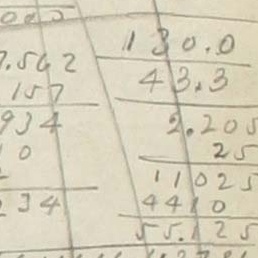 130.0
7.562 43.3
157
934 2.205
0 25
11025
234 4410
55.125